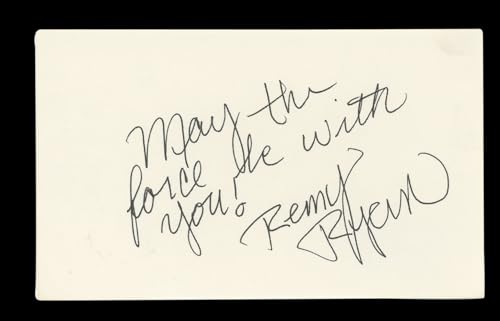 May the
force be with
you! Remy
Ryan